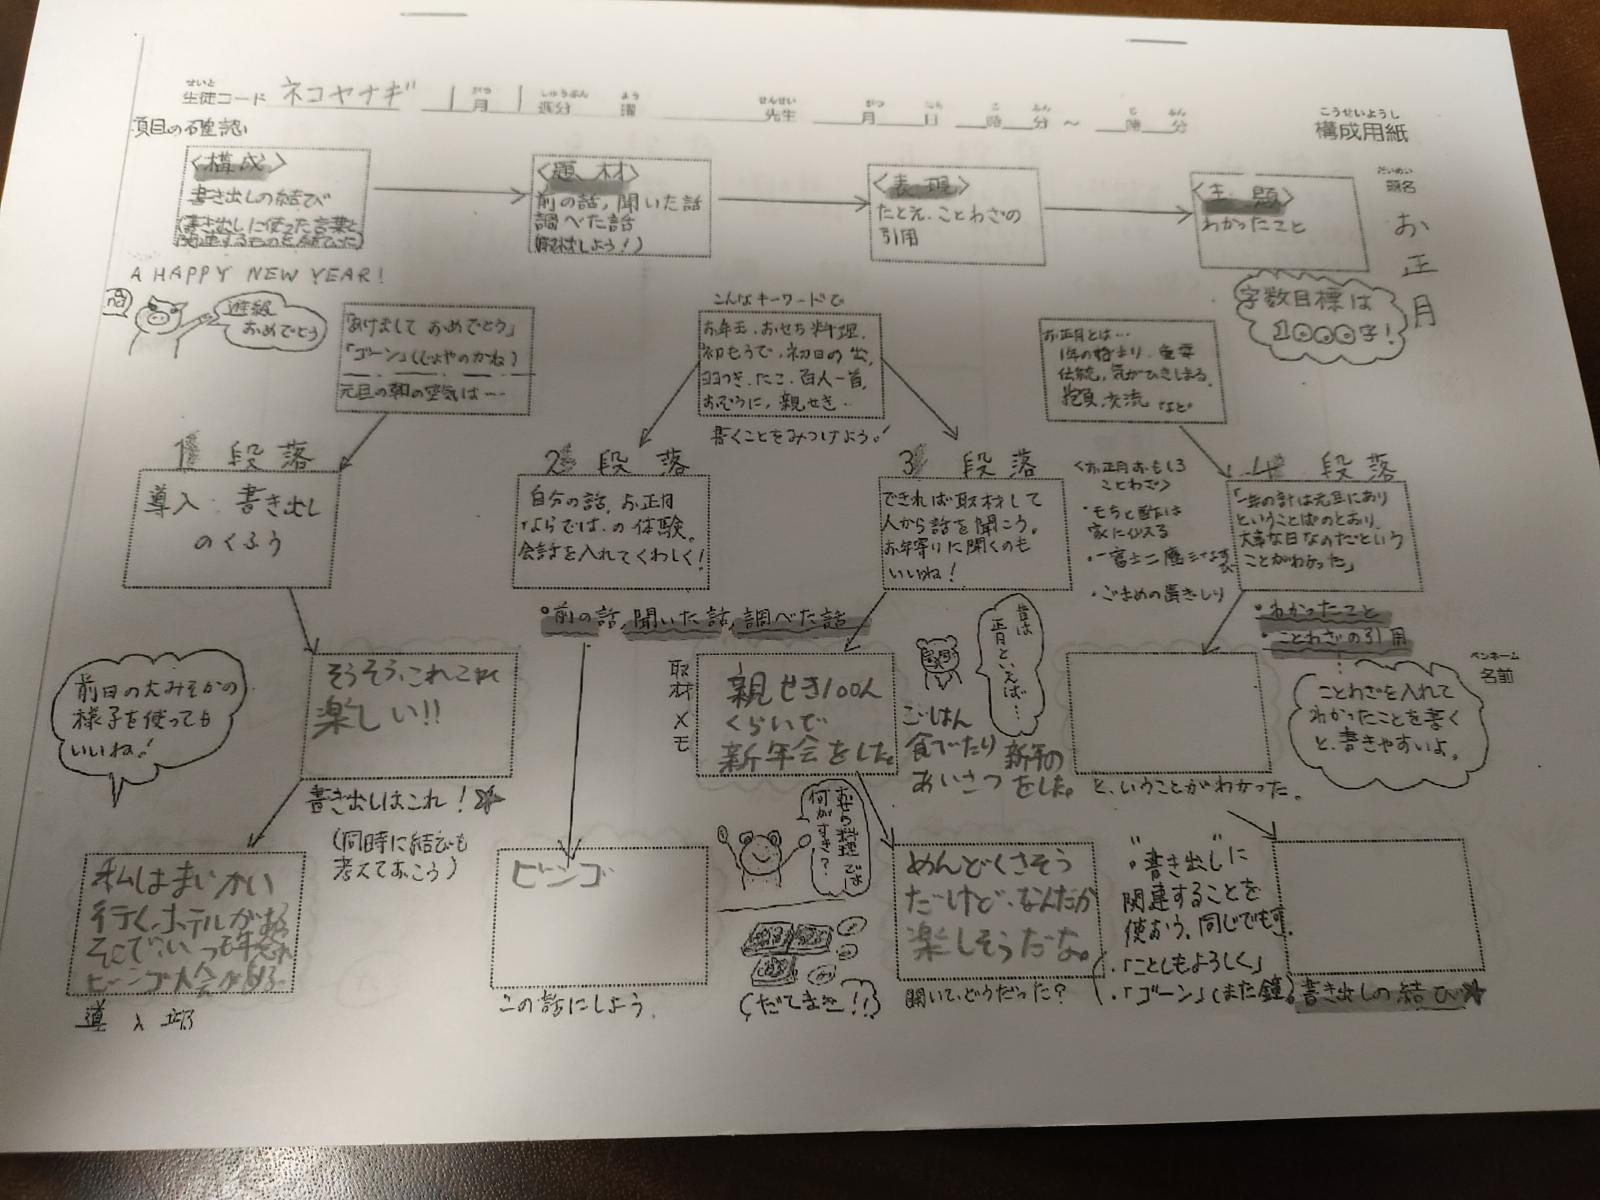 せいと
生徒コード ネコヤナギ 1月1週分 曜 先生 月 日 時 分 ～ 時 分
がつ しゅうぶん よう せんせい がつ ふん じ ふん
こうせいようし
構成用紙
項目の確認
〈構成〉
書き出しの結び
(書き出しに使った言葉と
〈題材〉
前の話, 聞いた話
調べた話
(取材しよう!)
〈表現〉
たとえ、ことわざの
引用
〈主題〉
わかったこと
だいめい
題名
お正月
A HAPPY NEW YEAR!
進級
おめでとう
「あけまして おめでとう」
「ゴーン」(じょやのかね)
元旦の朝の空気は…
こんなキーワードで
お年玉、おせち料理、
初もうで、初日の出、
羽つき、たこ、百人一首、
おぞうに、親せき…
書くことをみつけよう!
お正月とは…
1年の始まり、
伝統、気がひきしまる、
抱負、交流 など
字数目標は
1000字!
1 段落
導入:書き出し
のくふう
2 段落
自分の話、お正月
ならでは、の体験。
会話を入れてくわしく!
3 段落
できれば取材して
人から話を聞こう。
お年寄りに聞くのも
いいね!
〈お正月おもしろ
ことわざ〉
・もちと
家に似る
・一富士二鷹三なすび
・ごまめの歯ぎしり
4 段落
「一年の計は元旦にあり
ということばのとおり、
大事な日なのだという
ことがわかった」
・わかったこと
・ことわざの引用
。前の話, 聞いた話, 調べた話
前日の大みそかの
様子を使っても
いいね!
そうそう、これこれ
楽しい!!
書き出しはこれ!
(同時に結びも
考えておこう)
取材メモ
親せき100人
くらいで
新年会をした。
ごはん
食べたり 新年の
あいさつ をした。
昔は
正月といえば…
と、いうことがわかった。
ペンネーム
名前
ことわざを入れて
わかったことを書く
と、書きやすいよ。
私はまいかい
行く、ホテルがある
そこで、いつも年忘れ
ビンゴ大会が
導入部
ビンゴ
この話にしよう。
おせち料理では
何がすき?
(だてまき!!)
めんどくさそう
だけど、なんだか
楽しそうだな。
聞いて、どうだった?
"書き出し"に
関連することを
使おう。同じでも可。
・「ことしもよろしく」
・「ゴーン」(また鐘)
書き出しの結び